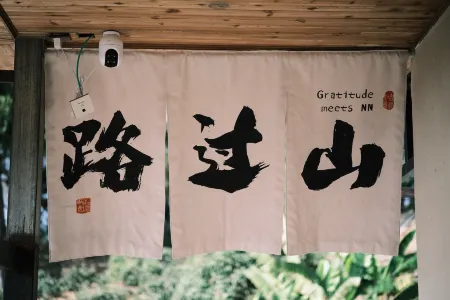 路过山
Gratitude
meets NN